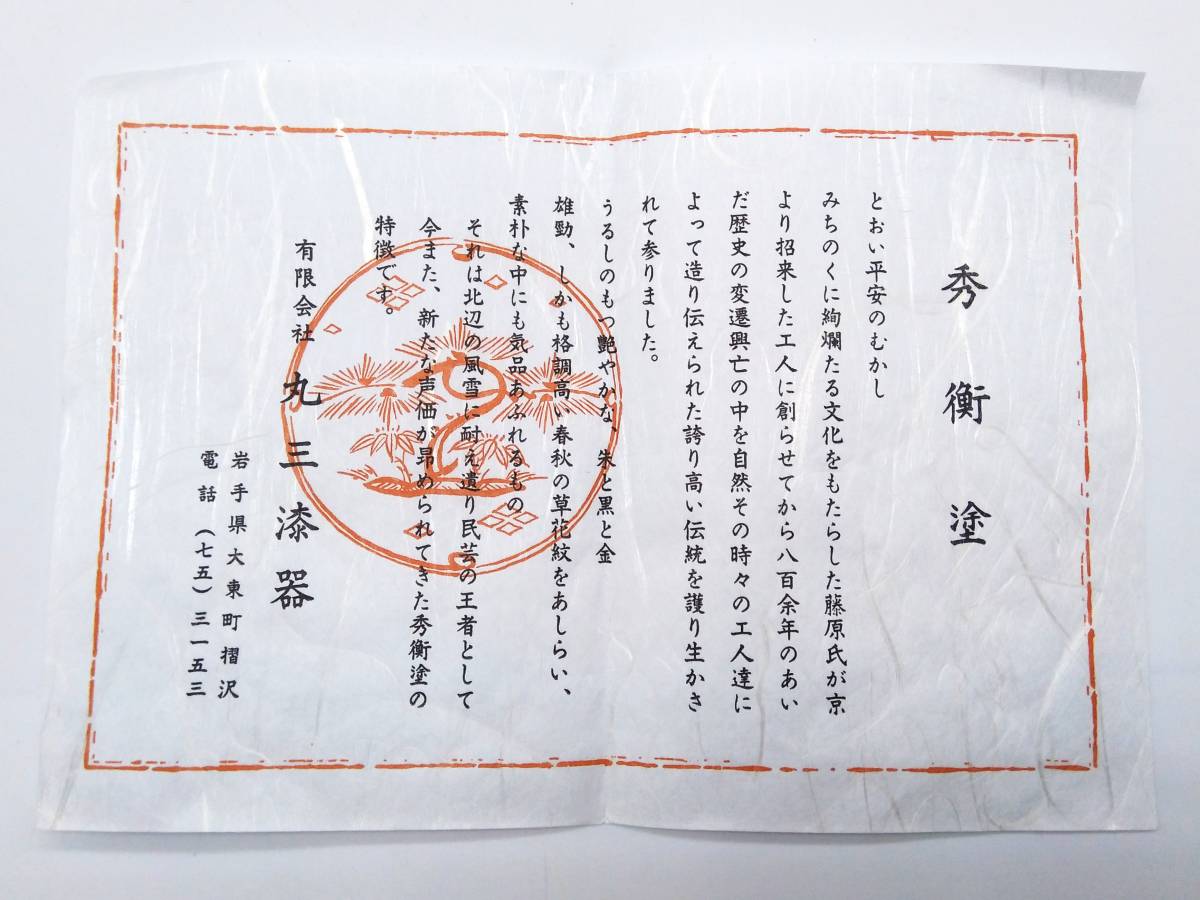 秀衡塗
とおい平安のむかし
みちのくに絢爛たる文化をもたらした藤原氏が京
より招来した工人に創らせてから八百余年のあい
だ歴史の変遷興亡の中を自然その時々の工人達に
よって造り伝えられた誇り高い伝統を護り生かさ
れて参りました。
うるしのもつ艶やかな、朱と黒と金
雄勁、しかも格調高い春秋の草花紋をあしらい、
素朴な中にも気品あふれるもの
それは北辺の風雪に耐え遺り民芸の王者として
今また、新たな声価が昂められてきた秀衡塗の
特徴です。
有限会社 丸三漆器
岩手県大東町摺沢
電話(七五)三一五三